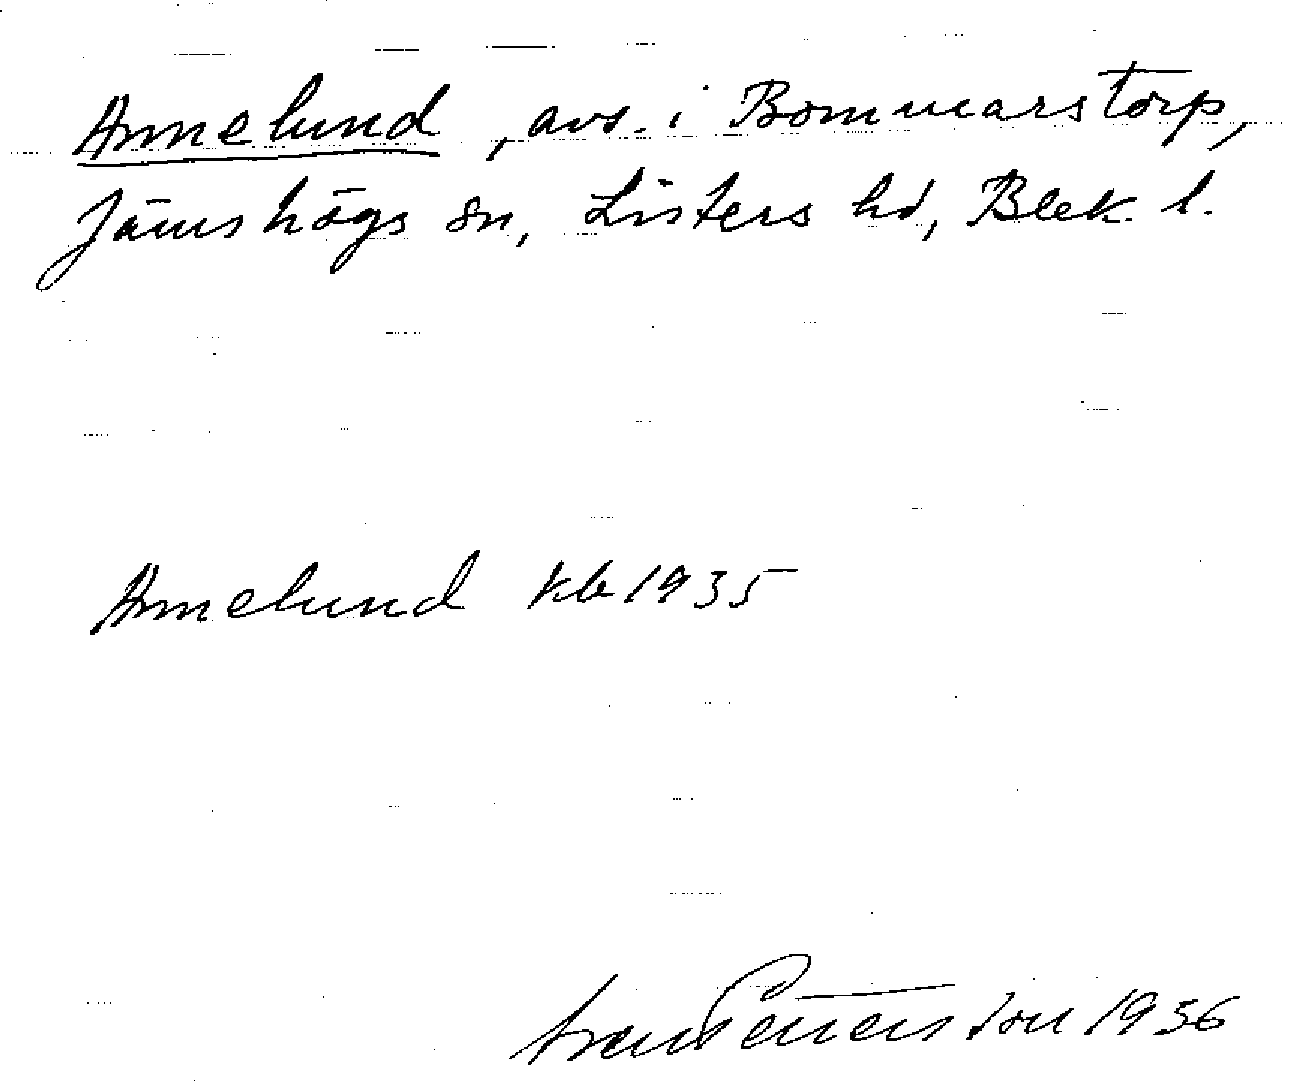 Annelund, avs. i Bommarstorp,
Jämshögs sn, Listers hd, Blek. l.
Annelund kb 1935
Petterson 1936